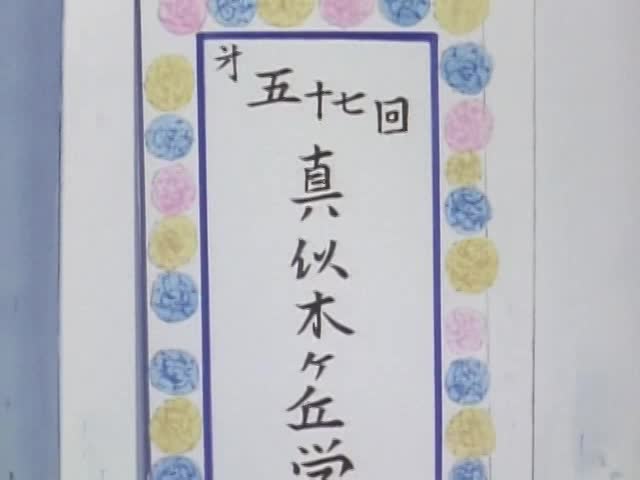 㐧五十七回
真似木ヶ丘学